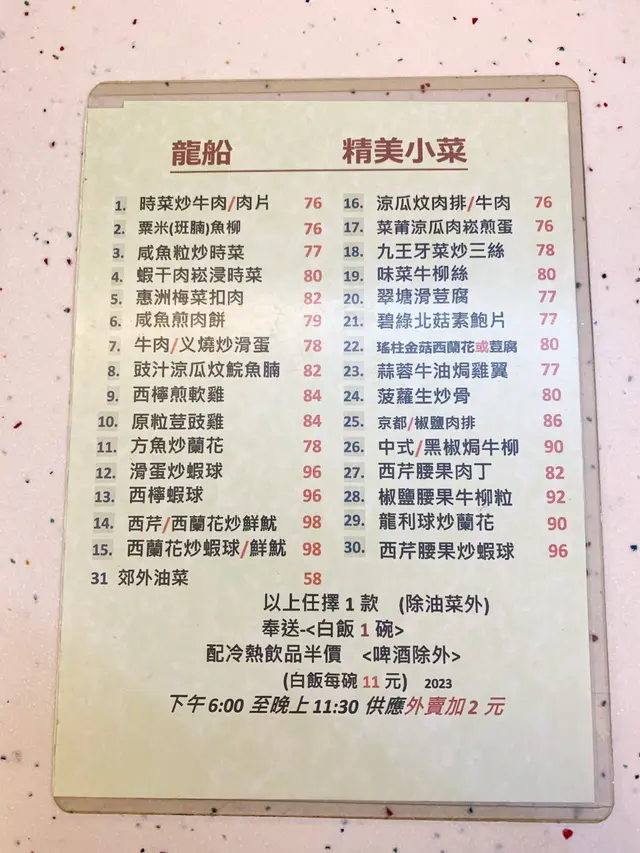 龍船 精美小菜
1. 時菜炒牛肉/肉片 76
2. 粟米(班腩)魚柳 76
3. 咸魚粒炒時菜 77
4. 蝦干肉崧浸時菜 80
5. 惠洲梅菜扣肉 82
6. 咸魚煎肉餅 79
7. 牛肉/义燒炒滑蛋 78
8. 豉汁涼瓜炆鯇魚腩 82
9. 西檸煎軟雞 84
10. 原粒荳豉雞 84
11. 方魚炒蘭花 78
12. 滑蛋炒蝦球 96
13. 西檸蝦球 96
14. 西芹/西蘭花炒鮮魷 98
15. 西蘭花炒蝦球/鮮魷 98
31 郊外油菜 58
16. 涼瓜炆肉排/牛肉 76
17. 菜莆涼瓜肉崧煎蛋 76
18. 九王牙菜炒三絲 78
19. 味菜牛柳絲 80
20. 翠塘滑荳腐 77
21. 碧綠北菇素鮑片 77
22. 瑤柱金菇西蘭花或荳腐 80
23. 蒜蓉牛油焗雞翼 77
24. 菠蘿生炒骨 80
25. 京都/椒鹽肉排 86
26. 中式/黑椒焗牛柳 90
27. 西芹腰果肉丁 82
28. 椒鹽腰果牛柳粒 92
29. 龍利球炒蘭花 90
30. 西芹腰果炒蝦球 96
以上任擇 1 款 (除油菜外)
奉送-<白飯 1 碗>
配冷熱飲品半價 <啤酒除外>
(白飯每碗 11 元) 2023
下午 6:00 至晚上 11:30 供應外賣加 2 元